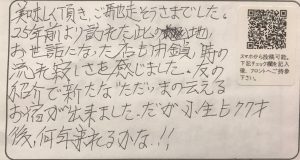 美味しく頂き、ご馳走そうさまでした。
25年前より訪れた此の地、
お世話になった店も閉鎖、時の
流れ寂しさを感じました。友の
紹介で新たな“ただいま”の云える
お宿が出来ました。だが小生占
後、何年来れるかな、!!
スマホから投稿可能。
下記チェック欄を記入
後、フロントへご持参
下さい。